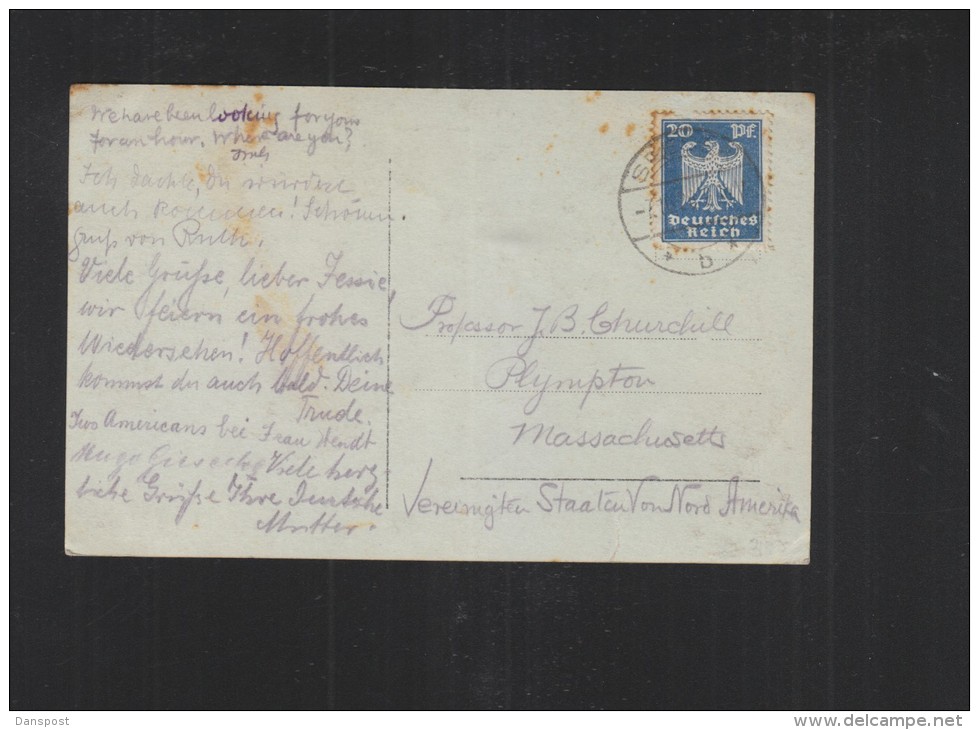 We have been looking for you
for an hour. Where are you?
Ich dachte, du würdest
auch kommen! Schönen
Gruß von Ruth.
Viele Grüße, lieber Jessie,
wir feiern ein frohes
Wiedersehen! Hoffentlich
kommst du auch bald. Deine
Trude.
Two Americans bei Frau Wendt
Hugo Viele herz-
liche Grüße Ihre Deutsche
Mutter.
20 Pf.
Deutsches
Reich
b
Professor J. B. Churchill
Plympton
Massachusetts
Vereinigten Staaten Von Nord Amerika
Danspost
delcampe.net